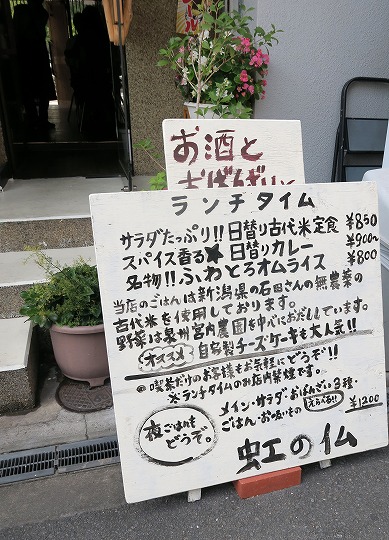 お酒と
おばんざいと
ランチタイム
サラダたっぷり!! 日替り古代米定食 ¥850
スパイス香る★日替りカレー ¥900
名物!! ふわとろオムライス ¥800
当店のごはんは新潟県の石田さんの無農薬の
古代米を使用しております。
野菜は泉州宮内農園を中心におだししています。
オススメ 自家製チーズケーキも大人気!!
◎喫茶だけのお客様もお気軽にどうぞ!!
※ランチタイムのお店内禁煙です。
夜ごはんも
どうぞ。
メイン・サラダ・おばんざい3種・
ごはん・お吸いもの えらべる!! ¥1200
虹の仏